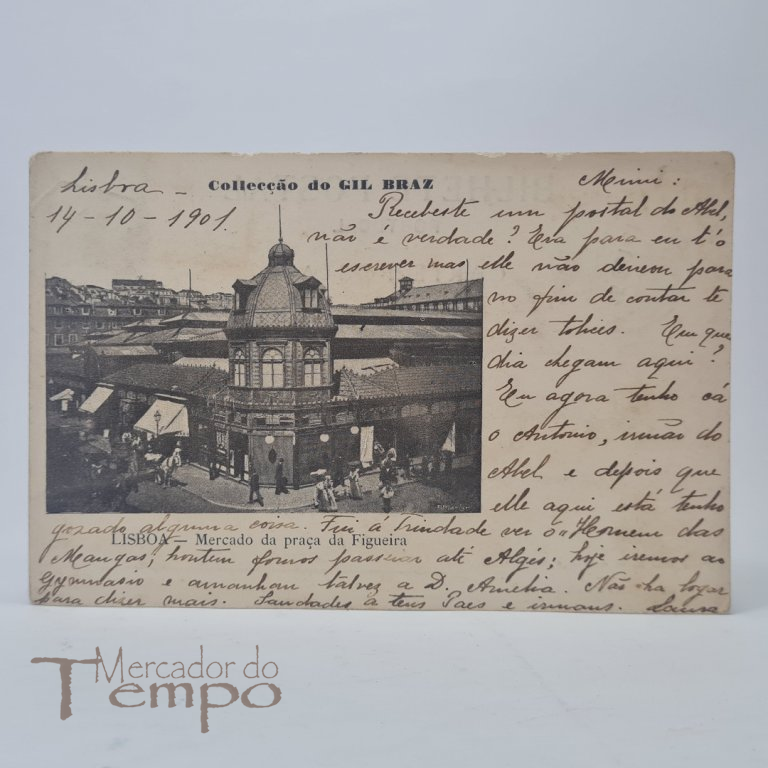 Lisboa -
14-10-1901.
Collecção do GIL BRAZ
Mimi:
Recebeste um postal do Abel,
não é verdade? Era para eu t'o
escrever mas elle não deixou para
no fim de contar te
dizer tolices. Em que
dia chegam aqui?
Eu agora tenho cá
o Antonio, irmão do
Abel e depois que
elle aqui está tenho
gozado alguma coisa. Fui á Trindade ver o "Homem das
LISBOA — Mercado da praça da Figueira
Mangas; hontem fomos passear até Algés; hoje iremos ao
Gymnasio e amanhan talvez a D. Amelia. Não ha logar
para dizer mais. Saudades a teus Paes e irmans. Laura
Mercador do
Tempo